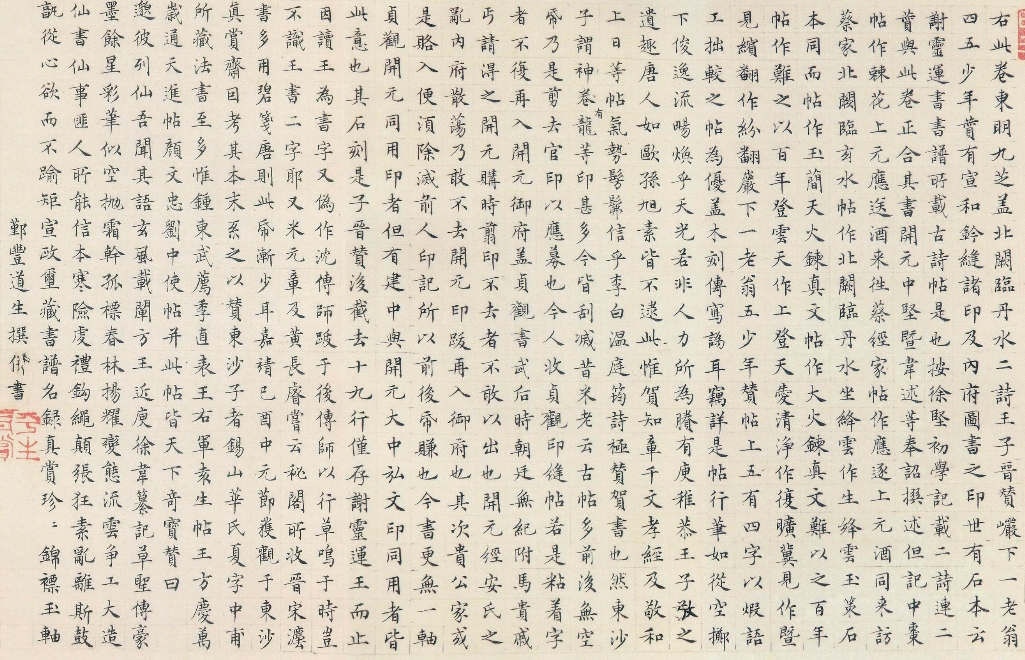 右此卷東明九芝蓋北闕臨丹水二詩王子晉贊巘下一老翁
四五少年贊有宣和鈐縫諸印及內府圖書之印世有石本云
謝靈運書書譜所載古詩帖是也按徐堅初學記載二詩連二
贊與此卷正合其書開元中堅暨韋述等奉詔撰述但記中棗
帖作棘花上元應送酒來往蔡經家帖作應逐上元酒同來訪
蔡家北闕臨玄水帖作北闕臨丹水坐絳雲作生絳雲玉策石
本同而帖作玉簡天火鍊真文帖作大火鍊真文難以之百年
帖作難之以百年登雲天作上登天愛清淨作復曠冀見作暨
見繽翻作紛翻巖下一老翁五少年贊帖上五有四字以煅語
工拙較之帖為優蓋木刻傳寫譌耳竊詳是帖行筆如從空擲
下俊逸流暢煥乎天光若非人力所為騰有庾稚恭王子敬之
遺趣唐人如歐孫旭素皆不逮此惟賀知章千文孝經及敬和
上日等帖氣勢髣髴信乎李白溫庭筠詩極贊賀書也然東沙
子謂神卷有龍等印甚多今皆刮滅昔米老云古帖多前後無空
帋乃是剪去官印以應募也今人收貞觀印縫帖若是粘着字
者不復再入開元御府蓋貞觀書武后時朝廷無紀附馬貴戚
丐請得之開元購時翦印不去者不敢以出也開元經安氏之
亂內府散蕩乃敢不去開元印跋再入御府也其次貴公家或
是賂入便須除滅前人印記所以前後帋賺也今書更無一軸
貞觀開元同用印者但有建中與開元大中弘文印同用者皆
此意也其石刻是子晉贊後截去十九行僅存謝靈運王而止
因讀王為書字又偽作沈傳師跋于後傳師以行草鳴于時豈
不識王書二字耶又米元章及黃長睿嘗云祕閣所收晉宋灋
書多用碧箋唐則此帋漸少耳嘉靖己酉中元節獲觀于東沙
真賞齋因考其本末系之以贊東沙子者錫山華氏夏字中甫
所藏法書至多惟鍾東武薦季直表王右軍袁生帖王方慶萬
歲通天進帖顏文忠劉中使帖并此帖皆天下奇寶贊曰
邈彼列仙吾聞其語玄風載闡方王近庾徐韋纂記草聖傳豪
墨餘星彩筆似空拋霜幹孤標春林揚耀變態流雲爭工大造
仙書仙事匪人所能信本寒險虔禮鉤繩顛張狂素亂離斯鼓
詎從心欲而不踰矩宣政璽藏書譜名錄真賞珍〻錦褾玉軸
鄞豐道生撰并書